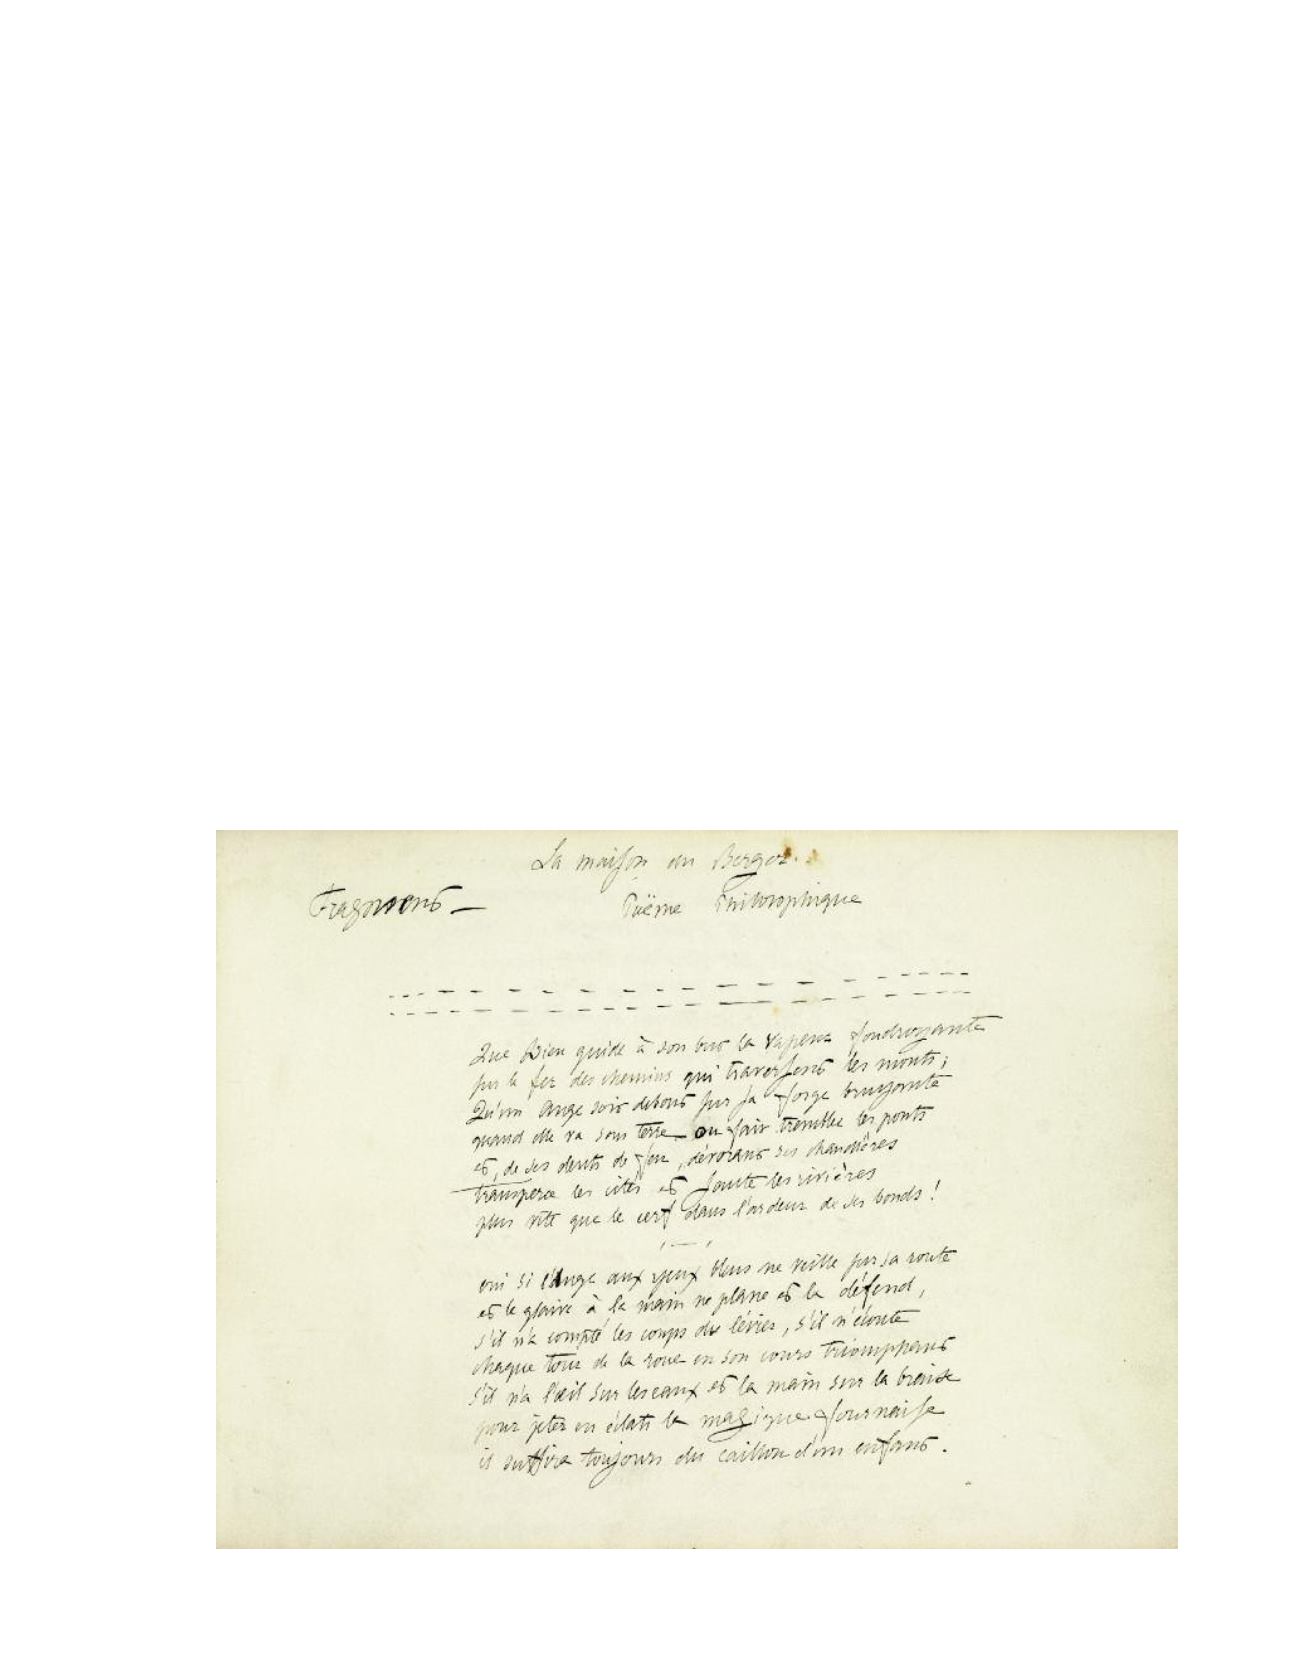 La maison du Berger.
Fragmens —
Poëme Philosophique
Que Dieu guide à son but la vapeur foudroyante
sur le fer des chemins qui traversent les monts;
Qu'un Ange soit debout sur sa forge bruyante
quand elle va sous terre ou fait trembler les ponts
et, de ses dents de feu, dévorant ses chaudières
transperce les cités et saute les rivières
plus vite que le cerf dans l'ardeur de ses bonds!
oui si l'Ange aux yeux bleus ne veille sur sa route
et le glaive à la main ne plane et la défend,
s'il n'a compté les coups du lévier, s'il n'écoute
chaque tour de la roue en son cours triomphant
s'il n'a l'œil sur les eaux et la main sur la braise
pour jeter en éclats la magique fournaise
il suffira toujours du caillou d'un enfant.